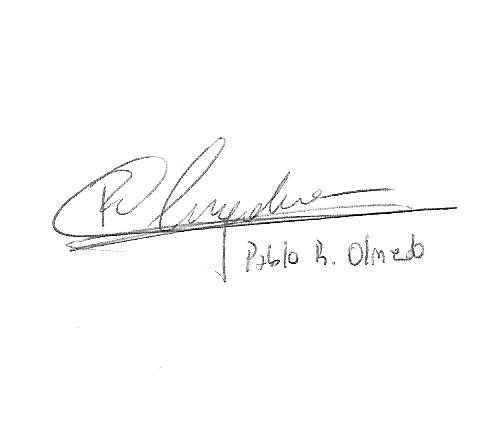 Pablo R. Olmedo